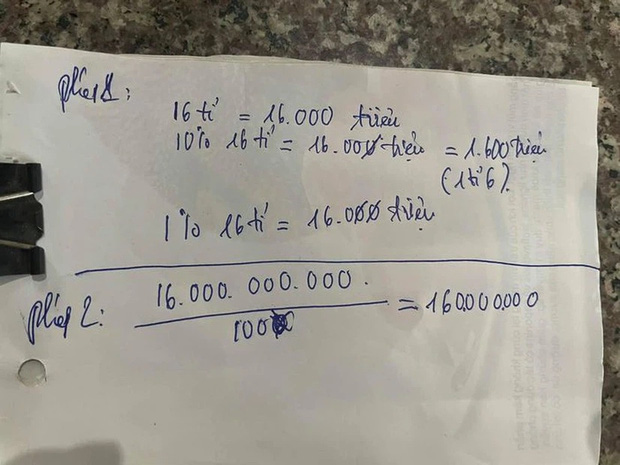 phép 1:
16 tỉ = 16.000 triệu
10% 16 tỉ = 16.000 triệu = 1.600 triệu
(1 tỉ 6).
1% 16 tỉ = 16.000 triệu
phép 2: 16.000.000.000. = 160.000.000
100